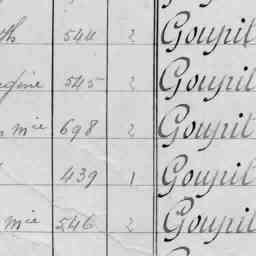 th 544 2 Goupil
545 2 Goupil
mie 698 2 Goupil
439 1 Goupil
mie 546 2 Goupil